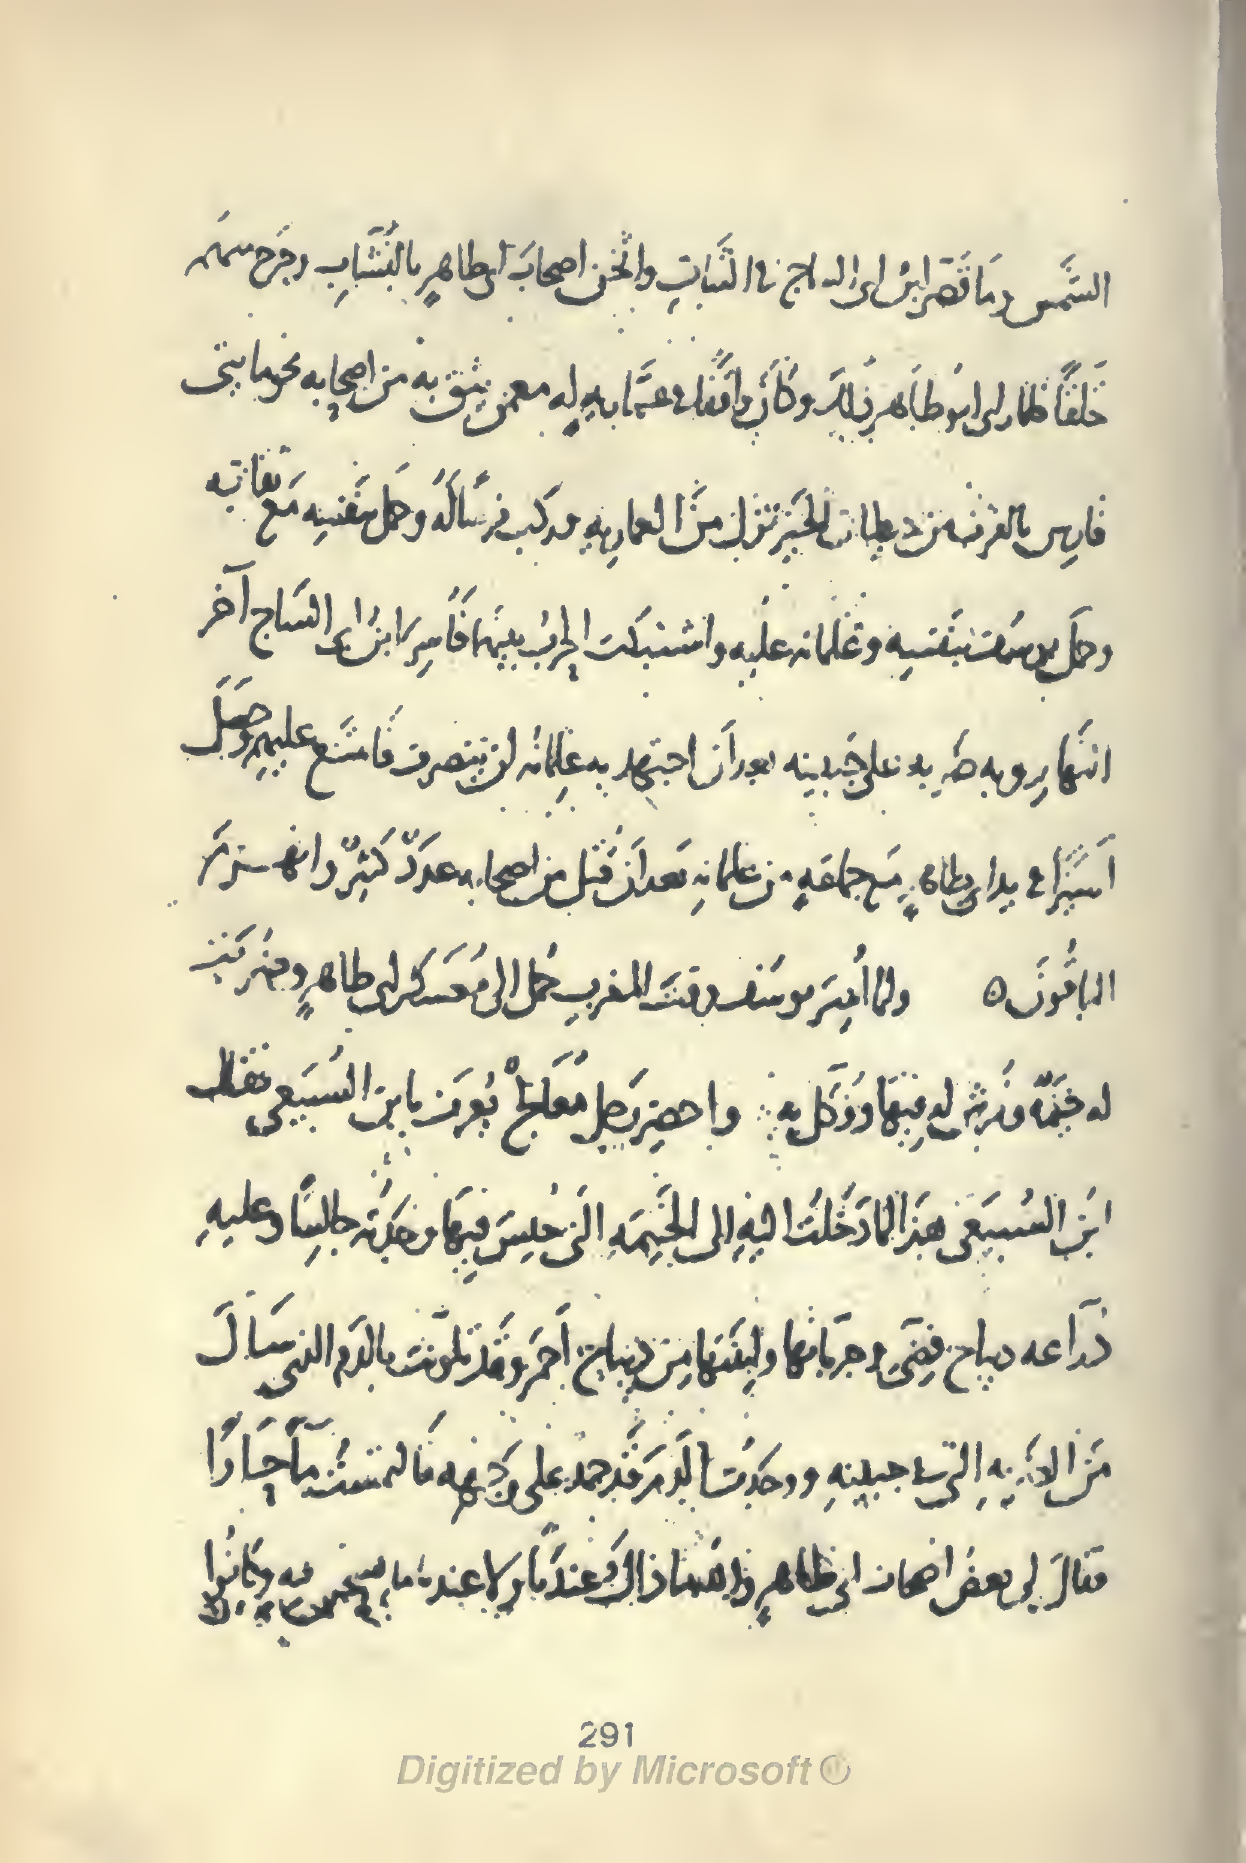 الشَّمس وما قَصَر ابنُ ابى الساج فى الثَّبَاتِ واثخن اصحابَ ابى طاهرٍ بالنُشَّابِ وجَرَح منهم
خَلقًا فلما راى ابو طاهر ذلك وكَانَ واقفًا فى عمَّاريهٍ له مع من يثق به من اصحابه نحو مايتى
فارس بالقرب من دبابات الخَيزُ نزل من العماريه وركب فرسًا له وحمل بنَفسِه مَع ثقاته
وحمَل يوسُف بنَفسِه وغلمانه عليه واشتبكت الحربُ بينهما فأُسِرَ ابنُ ابى السَاج آخر
النّهار وبه ضربه على جَبينه بعد أن اجتهد به غلمانُه ان ينصرف فامتنع عليهم وحصل
اسيرًا فى يد ابى طاهرٍ مع جماعَهٍ من غلمانه بعد ان قُتل من اصحابه عَدَدٌ كَثيرٌ وانهزمَ
الباقُونَ ه ولما أُسِرَ يوسُف وقتَ المغرب حُمل الى مُعَسكر ابى طاهرٍ وضُربَت
له خَيمَه وفُرِشَ له فيها ووُكِّل به واحضر رجل مُعَالِجٌ يُعرف بابن السُبيعى فقال
ابن السُبيعى هذا لما دَخَلتُ اليهِ الى الخَيمَهِ التى حُبِسَ فيها وجَدتُه جالسًا وعليهِ
دُرَّاعه ديباج فِضّى وجُربانها ولِبنَتها من ديباج أحمَر وقَد تلوَّثت بالدَم الذى سَالَ
مِنَ الضربهِ التى فى جبينهِ ووجَدتُ الدَم قَد جمد على وَجهه فالتمستُ مآً حَارًا
فقالَ لى بعضُ اصحاب ابى طاهرٍ والله ما ذاك عندنا ولا عندنا ما يسخن فيه وكَانُوا
291
Digitized by Microsoft ®